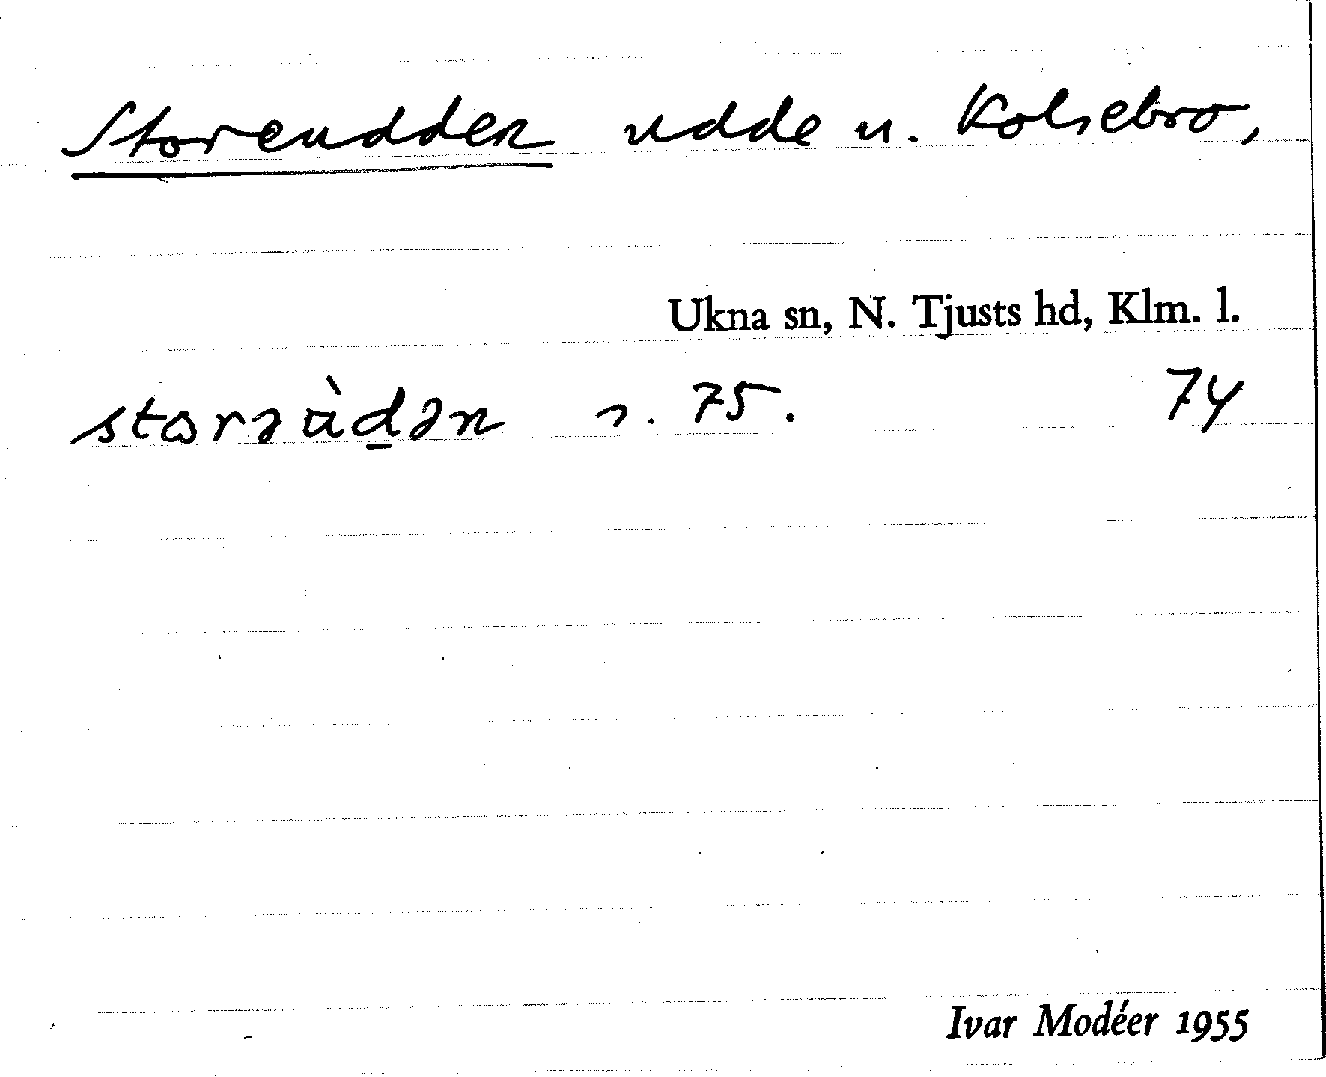 Storeudden udde u. Kolsebro,
Ukna sn, N. Tjusts hd, Klm. l.
storəùdən s. 75. 74
Ivar Modéer 1955